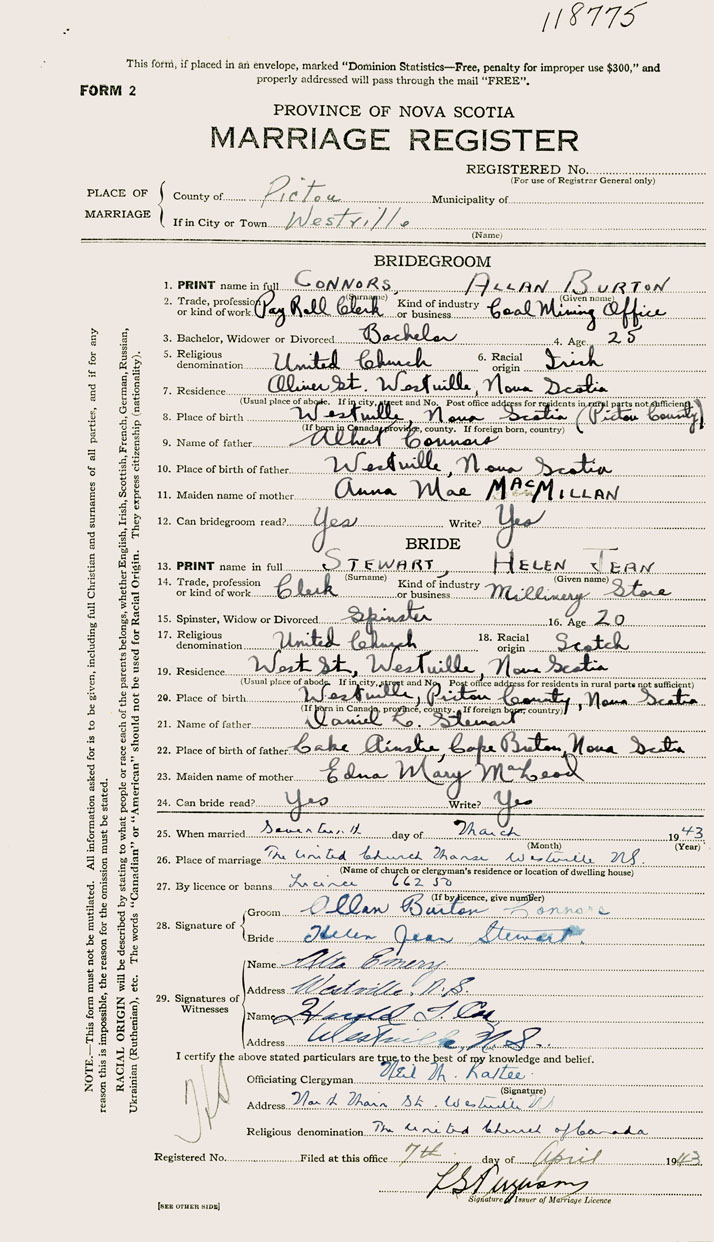 118775
This form, if placed in an envelope, marked "Dominion Statistics—Free, penalty for improper use $300," and
properly addressed will pass through the mail "FREE".
FORM 2
PROVINCE OF NOVA SCOTIA
MARRIAGE REGISTER
REGISTERED No.
(For use of Registrar General only)
PLACE OF MARRIAGE
County of Pictou Municipality of
If in City or Town Westville
(Name)
BRIDEGROOM
1. PRINT name in full CONNORS, ALLAN BURTON
(Surname) (Given name)
2. Trade, profession or kind of work Pay Roll Clerk Kind of industry or business Coal Mining Office
3. Bachelor, Widower or Divorced Bachelor 4. Age 25
5. Religious denomination United Church 6. Racial origin Irish
7. Residence Oliver St. Westville, Nova Scotia
(Usual place of abode. If in city, street and No. Post office address for residents in rural parts not sufficient)
8. Place of birth Westville, Nova Scotia (Pictou County)
(If born in Canada, province, county. If foreign born, country)
9. Name of father Albert Connors
10. Place of birth of father Westville, Nova Scotia
11. Maiden name of mother Anna Mae MACMILLAN
12. Can bridegroom read? Yes Write? Yes
BRIDE
13. PRINT name in full STEWART, HELEN JEAN
(Surname) (Given name)
14. Trade, profession or kind of work Clerk Kind of industry or business Millinery Store
15. Spinster, Widow or Divorced Spinster 16. Age 20
17. Religious denomination United Church 18. Racial origin Scotch
19. Residence West St., Westville, Nova Scotia
(Usual place of abode. If in city, street and No. Post office address for residents in rural parts not sufficient)
20. Place of birth Westville, Pictou County, Nova Scotia
(If born in Canada, province, county. If foreign born, country)
21. Name of father Daniel L. Stewart
22. Place of birth of father Lake Ainslie, Cape Breton, Nova Scotia
23. Maiden name of mother Edna Mary MacLeod
24. Can bride read? Yes Write? Yes
25. When married Seventh day of March 1943
(Month) (Year)
26. Place of marriage The United Church Manse Westville N.S.
(Name of church or clergyman's residence or location of dwelling house)
27. By licence or banns Licence 66250
(If by licence, give number)
28. Signature of
Groom Allan Burton Connors
Bride Helen Jean Stewart.
29. Signatures of Witnesses
Name Alta Emery
Address Westville, N.S.
Name Harold
Address Westville, N.S.
I certify the above stated particulars are true to the best of my knowledge and belief.
Officiating Clergyman Neil M.
(Signature)
Address North Main St. Westville
Religious denomination The United Church of Canada
Registered No. Filed at this office 7th day of April 1943
Signature Issuer of Marriage Licence
[SEE OTHER SIDE]
NOTE.—This form must not be mutilated. All information asked for is to be given, including full Christian and surnames of all parties, and if for any
reason this is impossible, the reason for the omission must be stated.
RACIAL ORIGIN will be described by stating to what people or race each of the parents belongs, whether English, Irish, Scottish, French, German, Russian,
Ukrainian (Ruthenian), etc. The words "Canadian" or "American" should not be used for Racial Origin. They express citizenship (nationality).